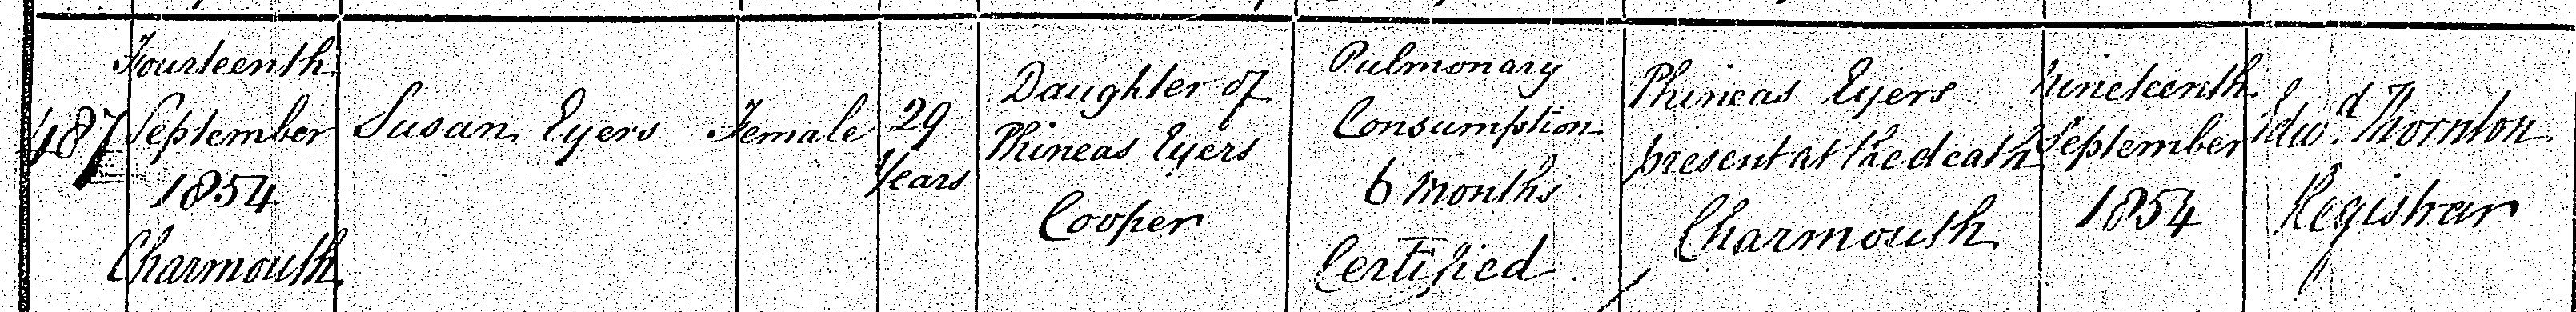 487
Fourteenth
September
1854
Charmouth
Susan Eyers
Female
29
Years
Daughter of
Phineas Eyers
Cooper
Pulmonary
Consumption
6 Months
Certified
Phineas Eyers
present at the death
Charmouth
Nineteenth
September
1854
Edwd. Thornton
Registrar